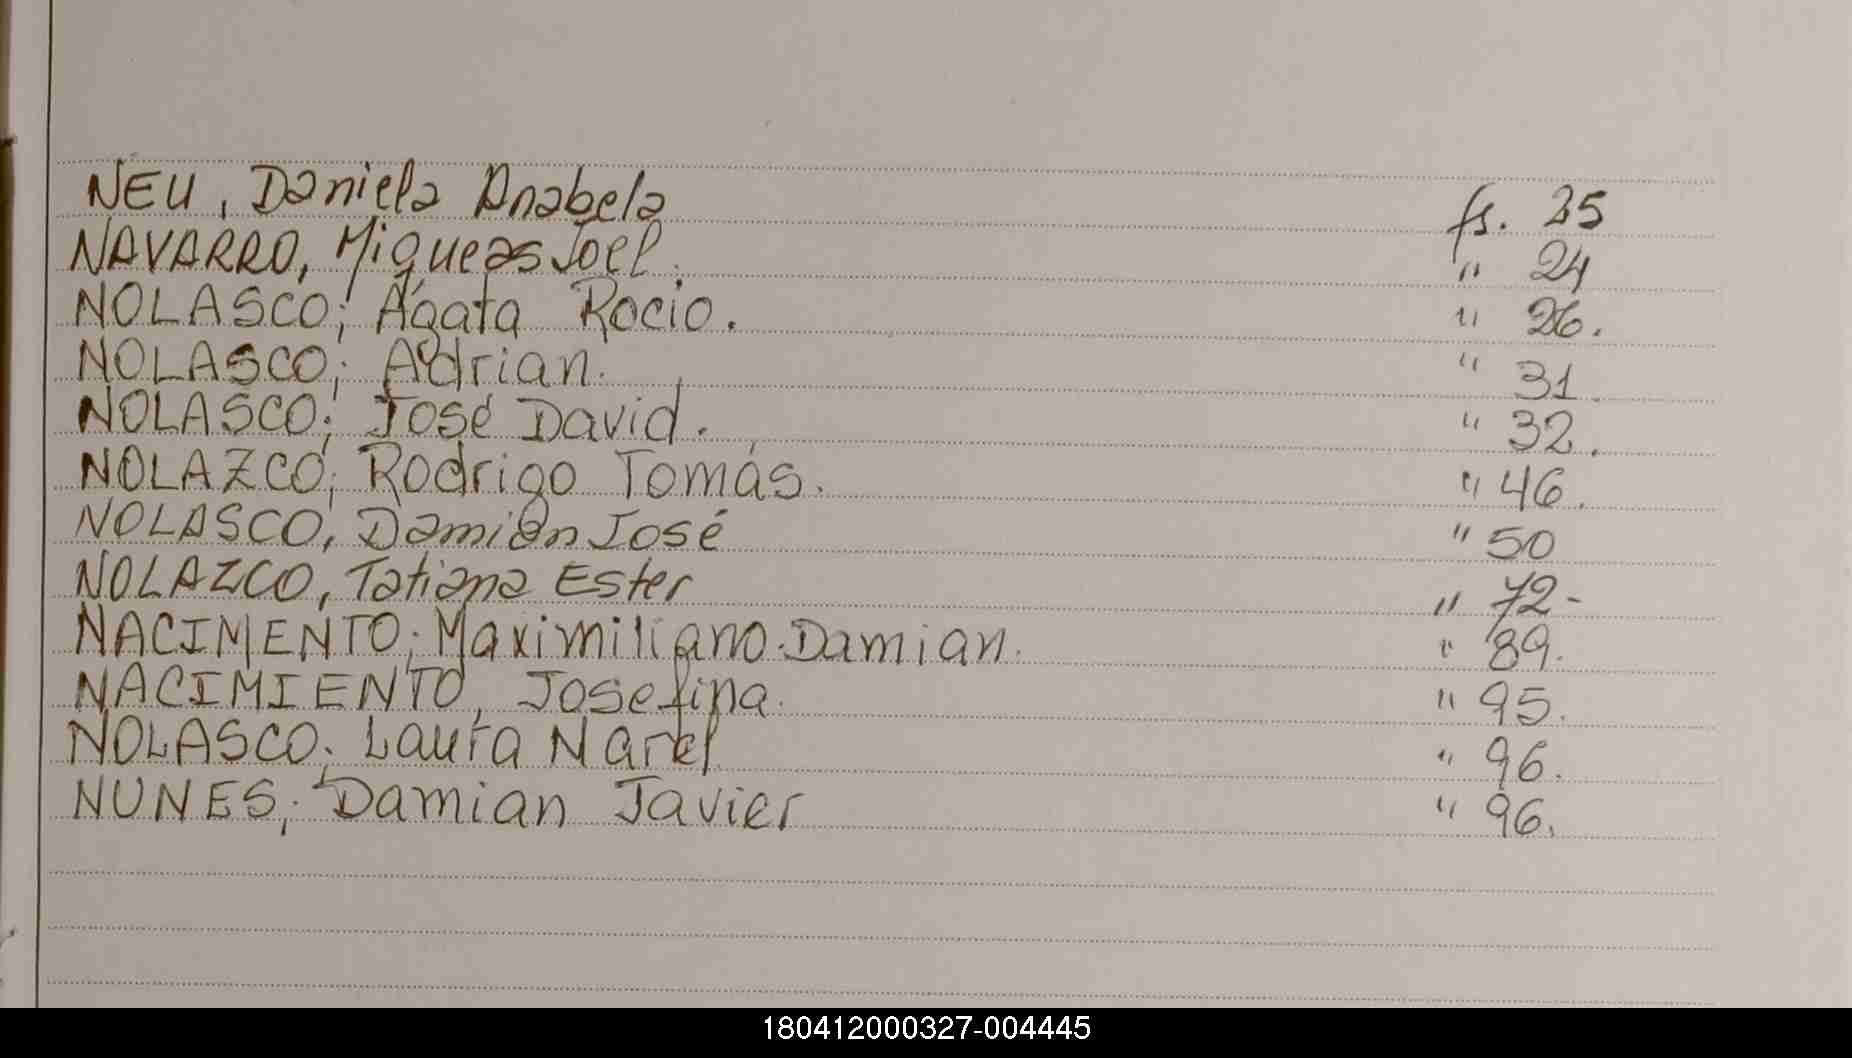 NEU, Daniela Anabela fs. 25
NAVARRO, Miqueas Joel. " 24
NOLASCO; Ágata Rocio. " 26.
NOLASCO; Adrian. " 31.
NOLASCO; José David. " 32.
NOLAZCO; Rodrigo Tomás. " 46.
NOLASCO, Damián José " 50
NOLAZCO, Tatiana Ester " 72-
NACIMENTO; Maximiliano Damian. " 89.
NACIMIENTO, Josefina. " 95.
NOLASCO. Laura Narel " 96.
NUNES; Damian Javier " 96.
180412000327-004445